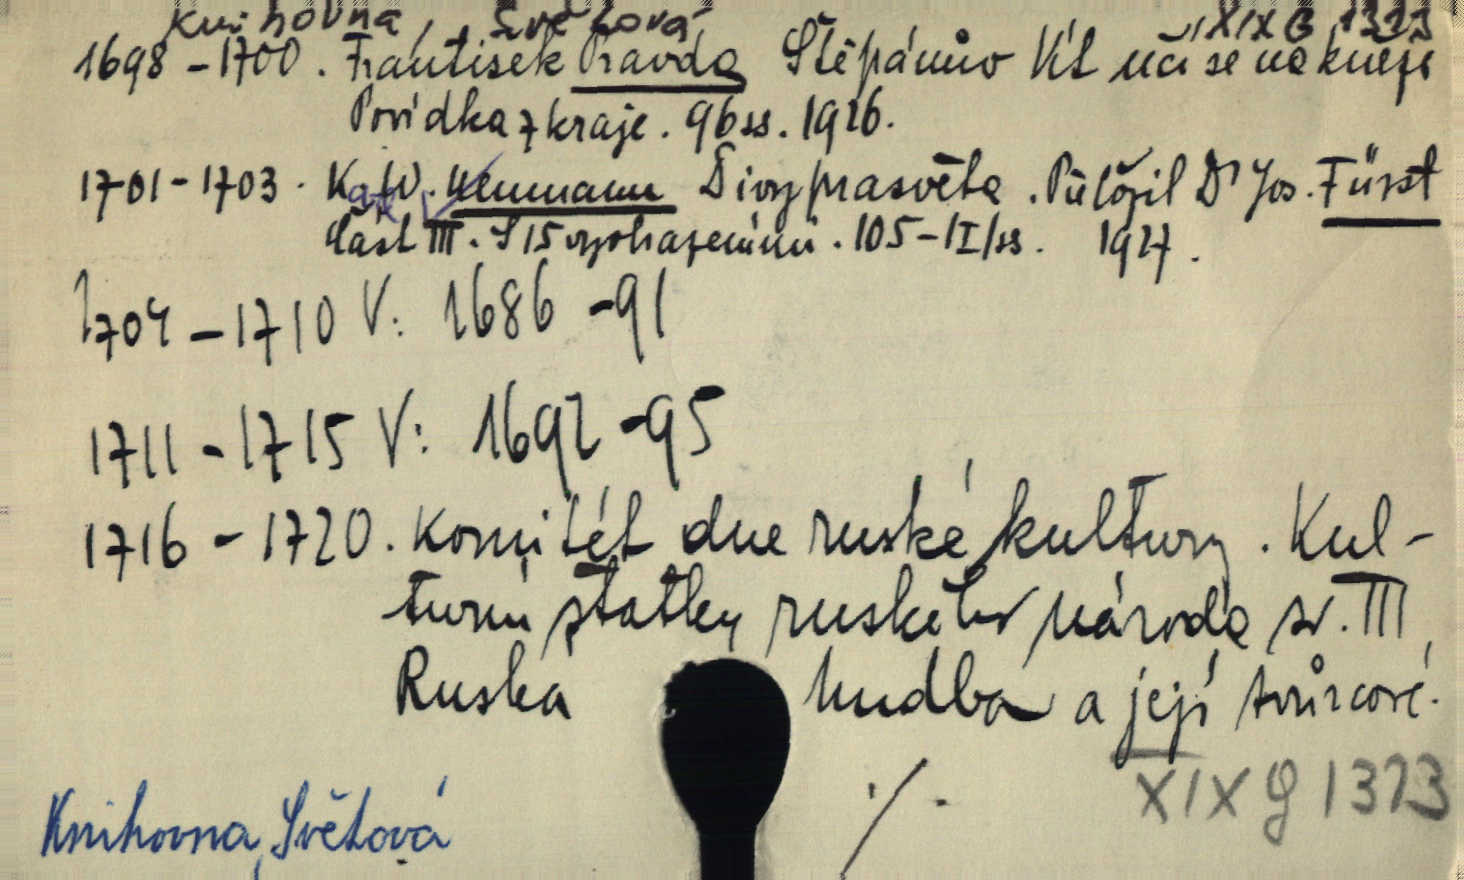 Knihovna, Světová XIX G 1323
1698-1700. František Pravda Štěpánův Vít učí se na kněze
Povídka z kraje. 96 ss. 1926.
1701-1703. K. W. Neumann Divy prasvěta. Přeložil Dr Jos. Fürst
Část III. S 15 vyobrazeními. 105-|I|ss. 1927.
1704-1710 V: 1686-91
1711-1715 V: 1692-95
1716-1720. Komitét dne ruské kultury. Kul-
turní statky ruského národa sv. III
Ruská hudba a její tvůrcové.
./. XIX G 1323
Knihovna, Světová